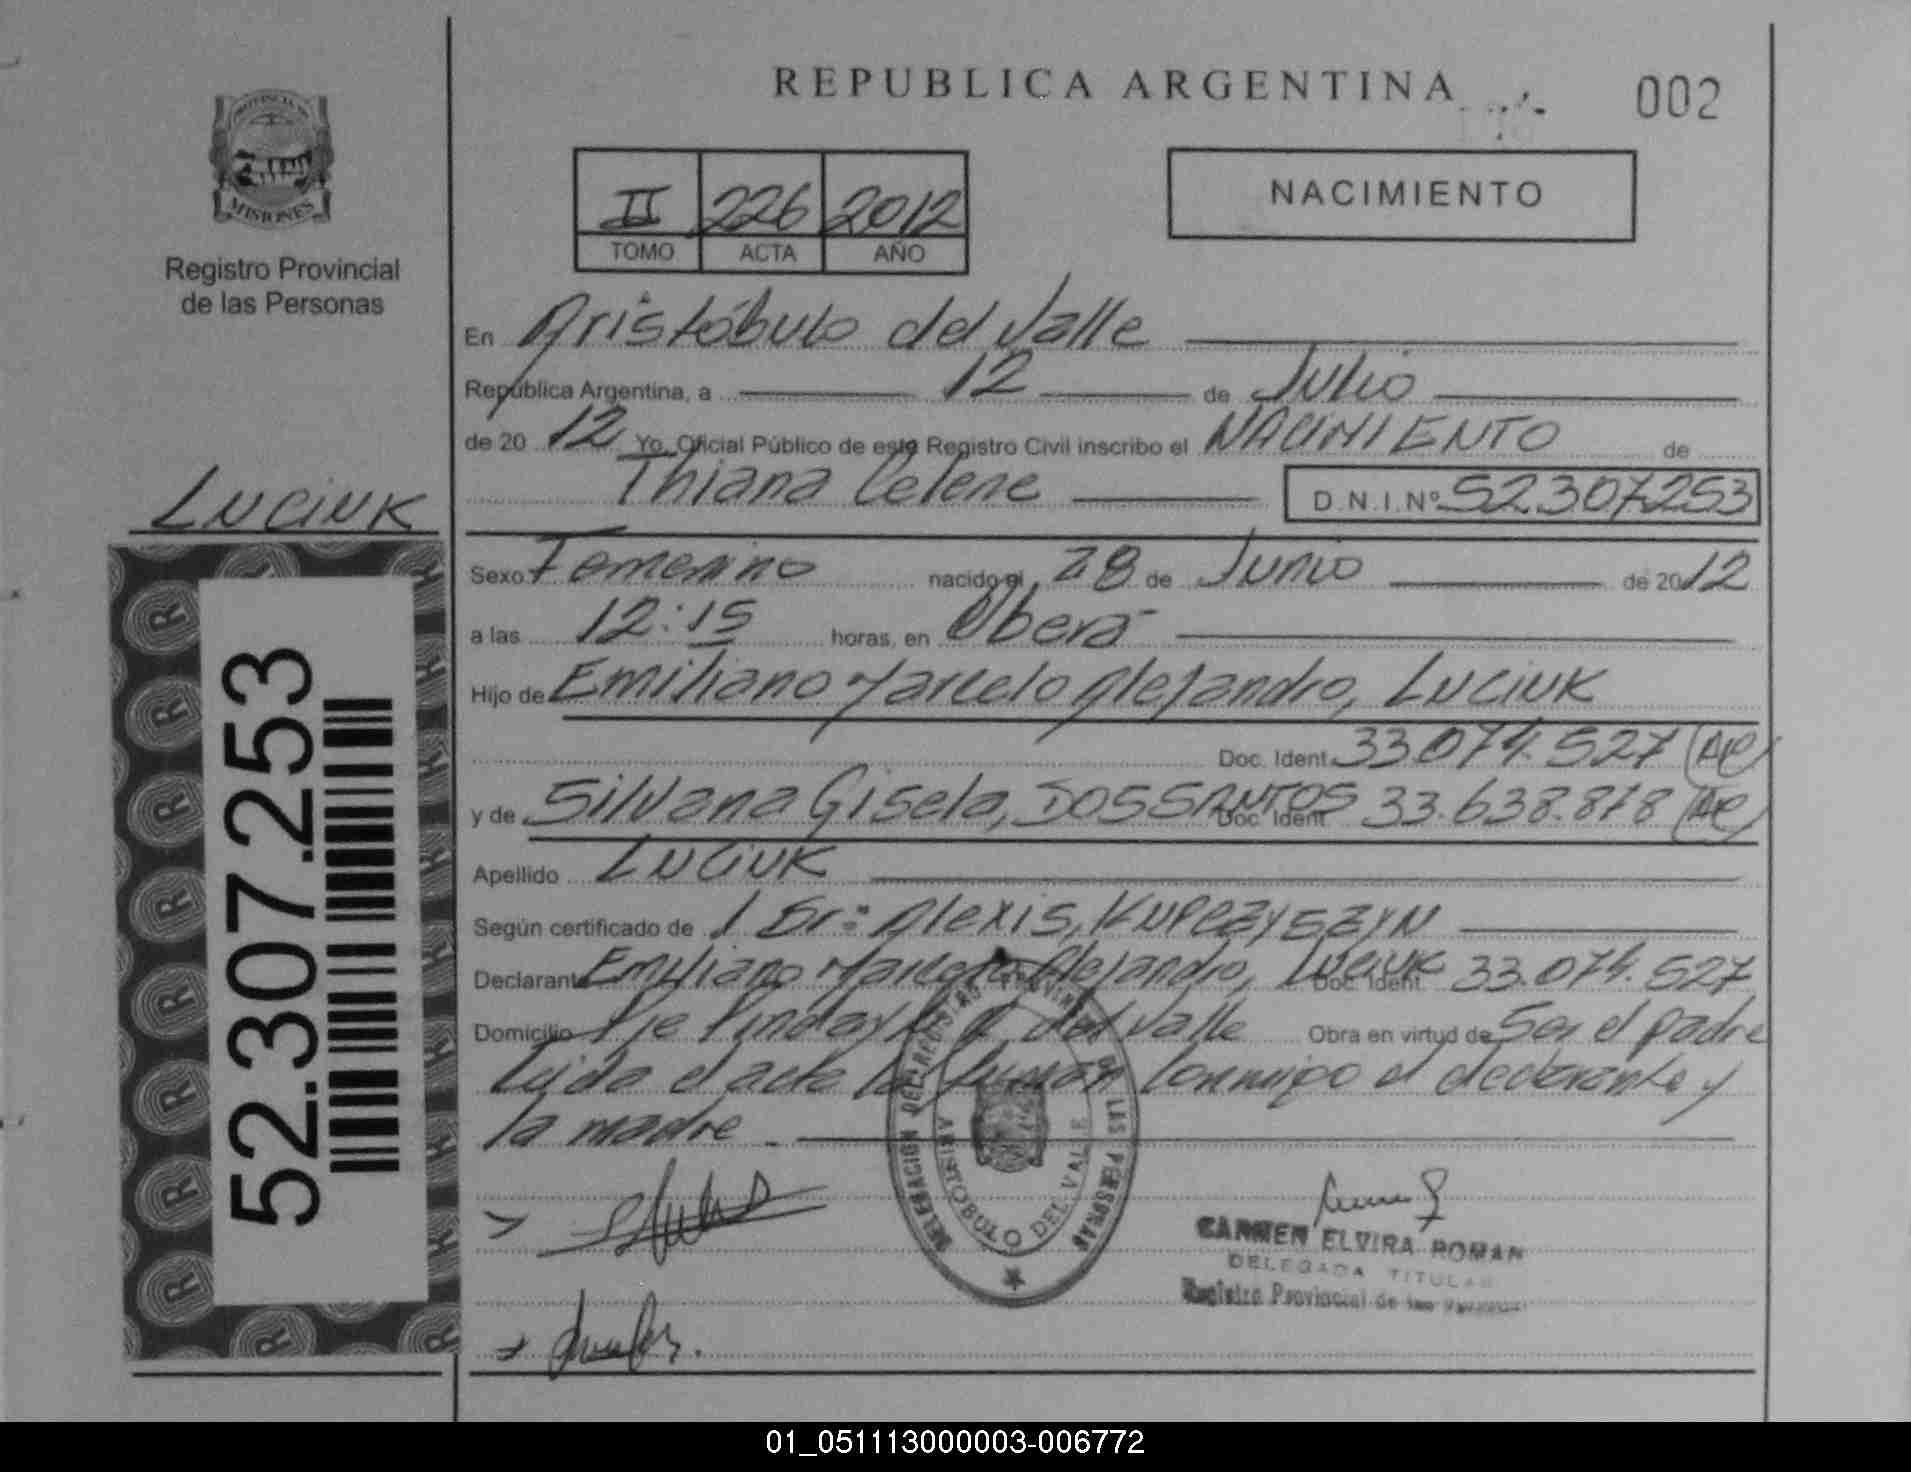 REPUBLICA ARGENTINA
002
PROVINCIA DE
MISIONES
Registro Provincial
de las Personas
II 226 2012
TOMO ACTA AÑO
NACIMIENTO
En Aristóbulo del Valle
República Argentina, a 12 de Julio
de 2012 Yo, Oficial Público de este Registro Civil inscribo el NACIMIENTO de
Thiana Celene D.N.I.Nº 52.307.253
LUCIUK
52.307.253
Sexo Femenino nacido el 28 de Junio de 2012
a las 12:15 horas, en Oberá
Hijo de Emiliano Marcelo Alejandro, LUCIUK
Doc. Ident. 33.074.527 (Ac)
y de Silvana Gisela, DOSSANTOS Doc. Ident 33.638.878 (Ac)
Apellido LUCIUK
Según certificado de / Dr: Alexis, KUPCZYSZYN
Declarante Emiliano Marcelo Alejandro, Luciuk Doc. Ident. 33.074.527
Domicilio Pje Pindaytí A. del Valle Obra en virtud de Ser el padre
Leida el acta la firman conmigo el declarante y
la madre
DELEGACION DEL REGISTRO PROVINCIAL DE LAS PERSONAS
ARISTOBULO DEL VALLE
CARMEN ELVIRA ROMAN
DELEGADA TITULAR
Registro Provincial de las Personas
01_051113000003-006772